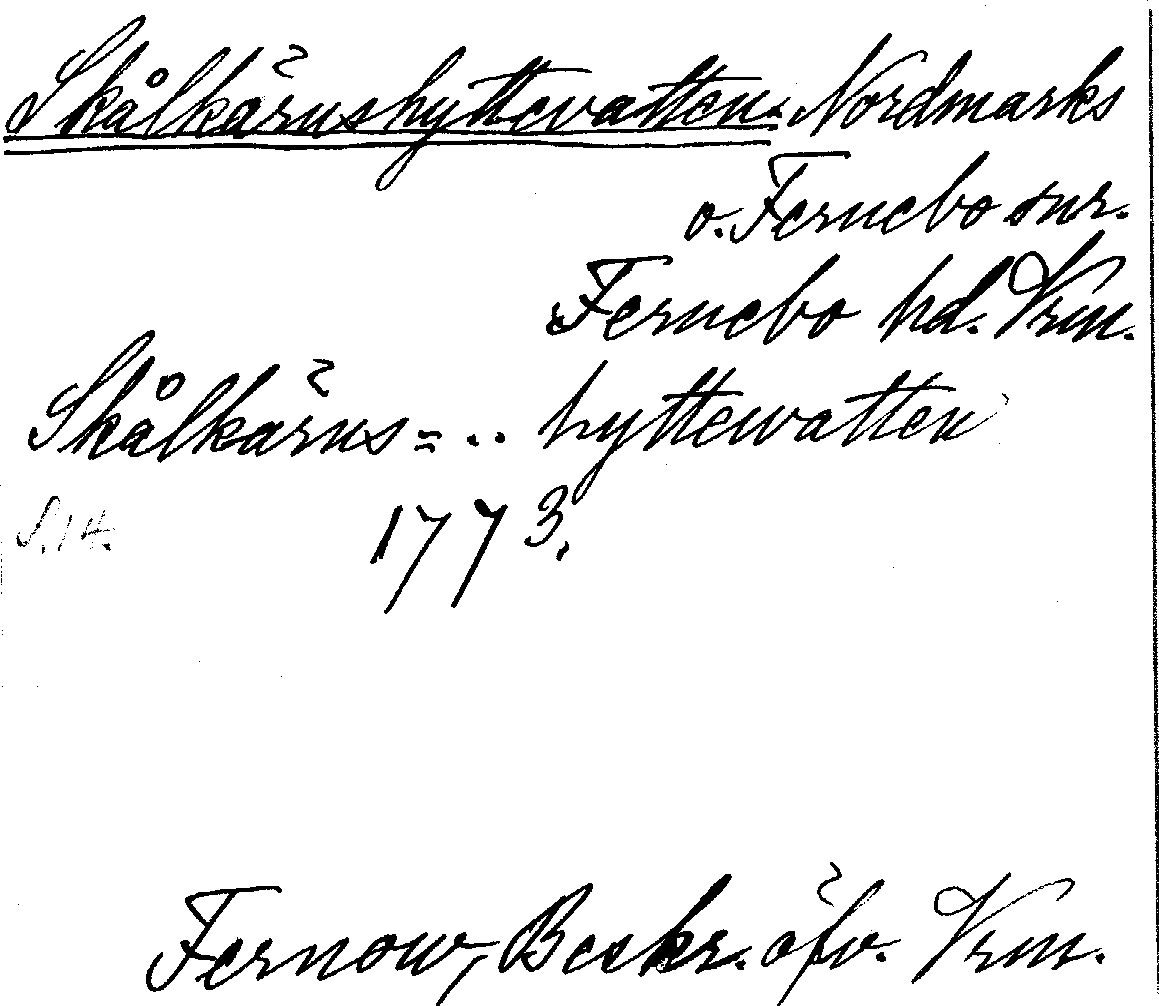 Skålkärnshyttevatten. Nordmarks
o. Fernebo snr.
Fernebo hd. Vrm.
Skålkärns= .. hyttewatten
S. 14. 1773.
Fernow, Beskr. öfv. Vrm.